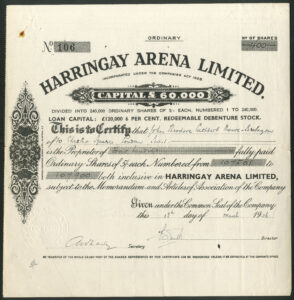 ORDINARY
Nº 106
Nº OF SHARES
400
HARRINGAY ARENA LIMITED.
INCORPORATED UNDER THE COMPANIES ACT 1929.
CAPITAL £60,000
DIVIDED INTO 240,000 ORDINARY SHARES OF 5/- EACH, NUMBERED 1 TO 240,000.
LOAN CAPITAL: £120,000 6 PER CENT. REDEEMABLE DEBENTURE STOCK.
This is to Certify that John Theodore
of
is the Proprietor of Four Hundred fully paid
Ordinary Shares of 5/- each Numbered from 107501 to
107900 both inclusive in HARRINGAY ARENA LIMITED,
subject to the Memorandum and Articles of Association of the Company
Given under the Common Seal of the Company
this day of March 1936
Secretary
Director